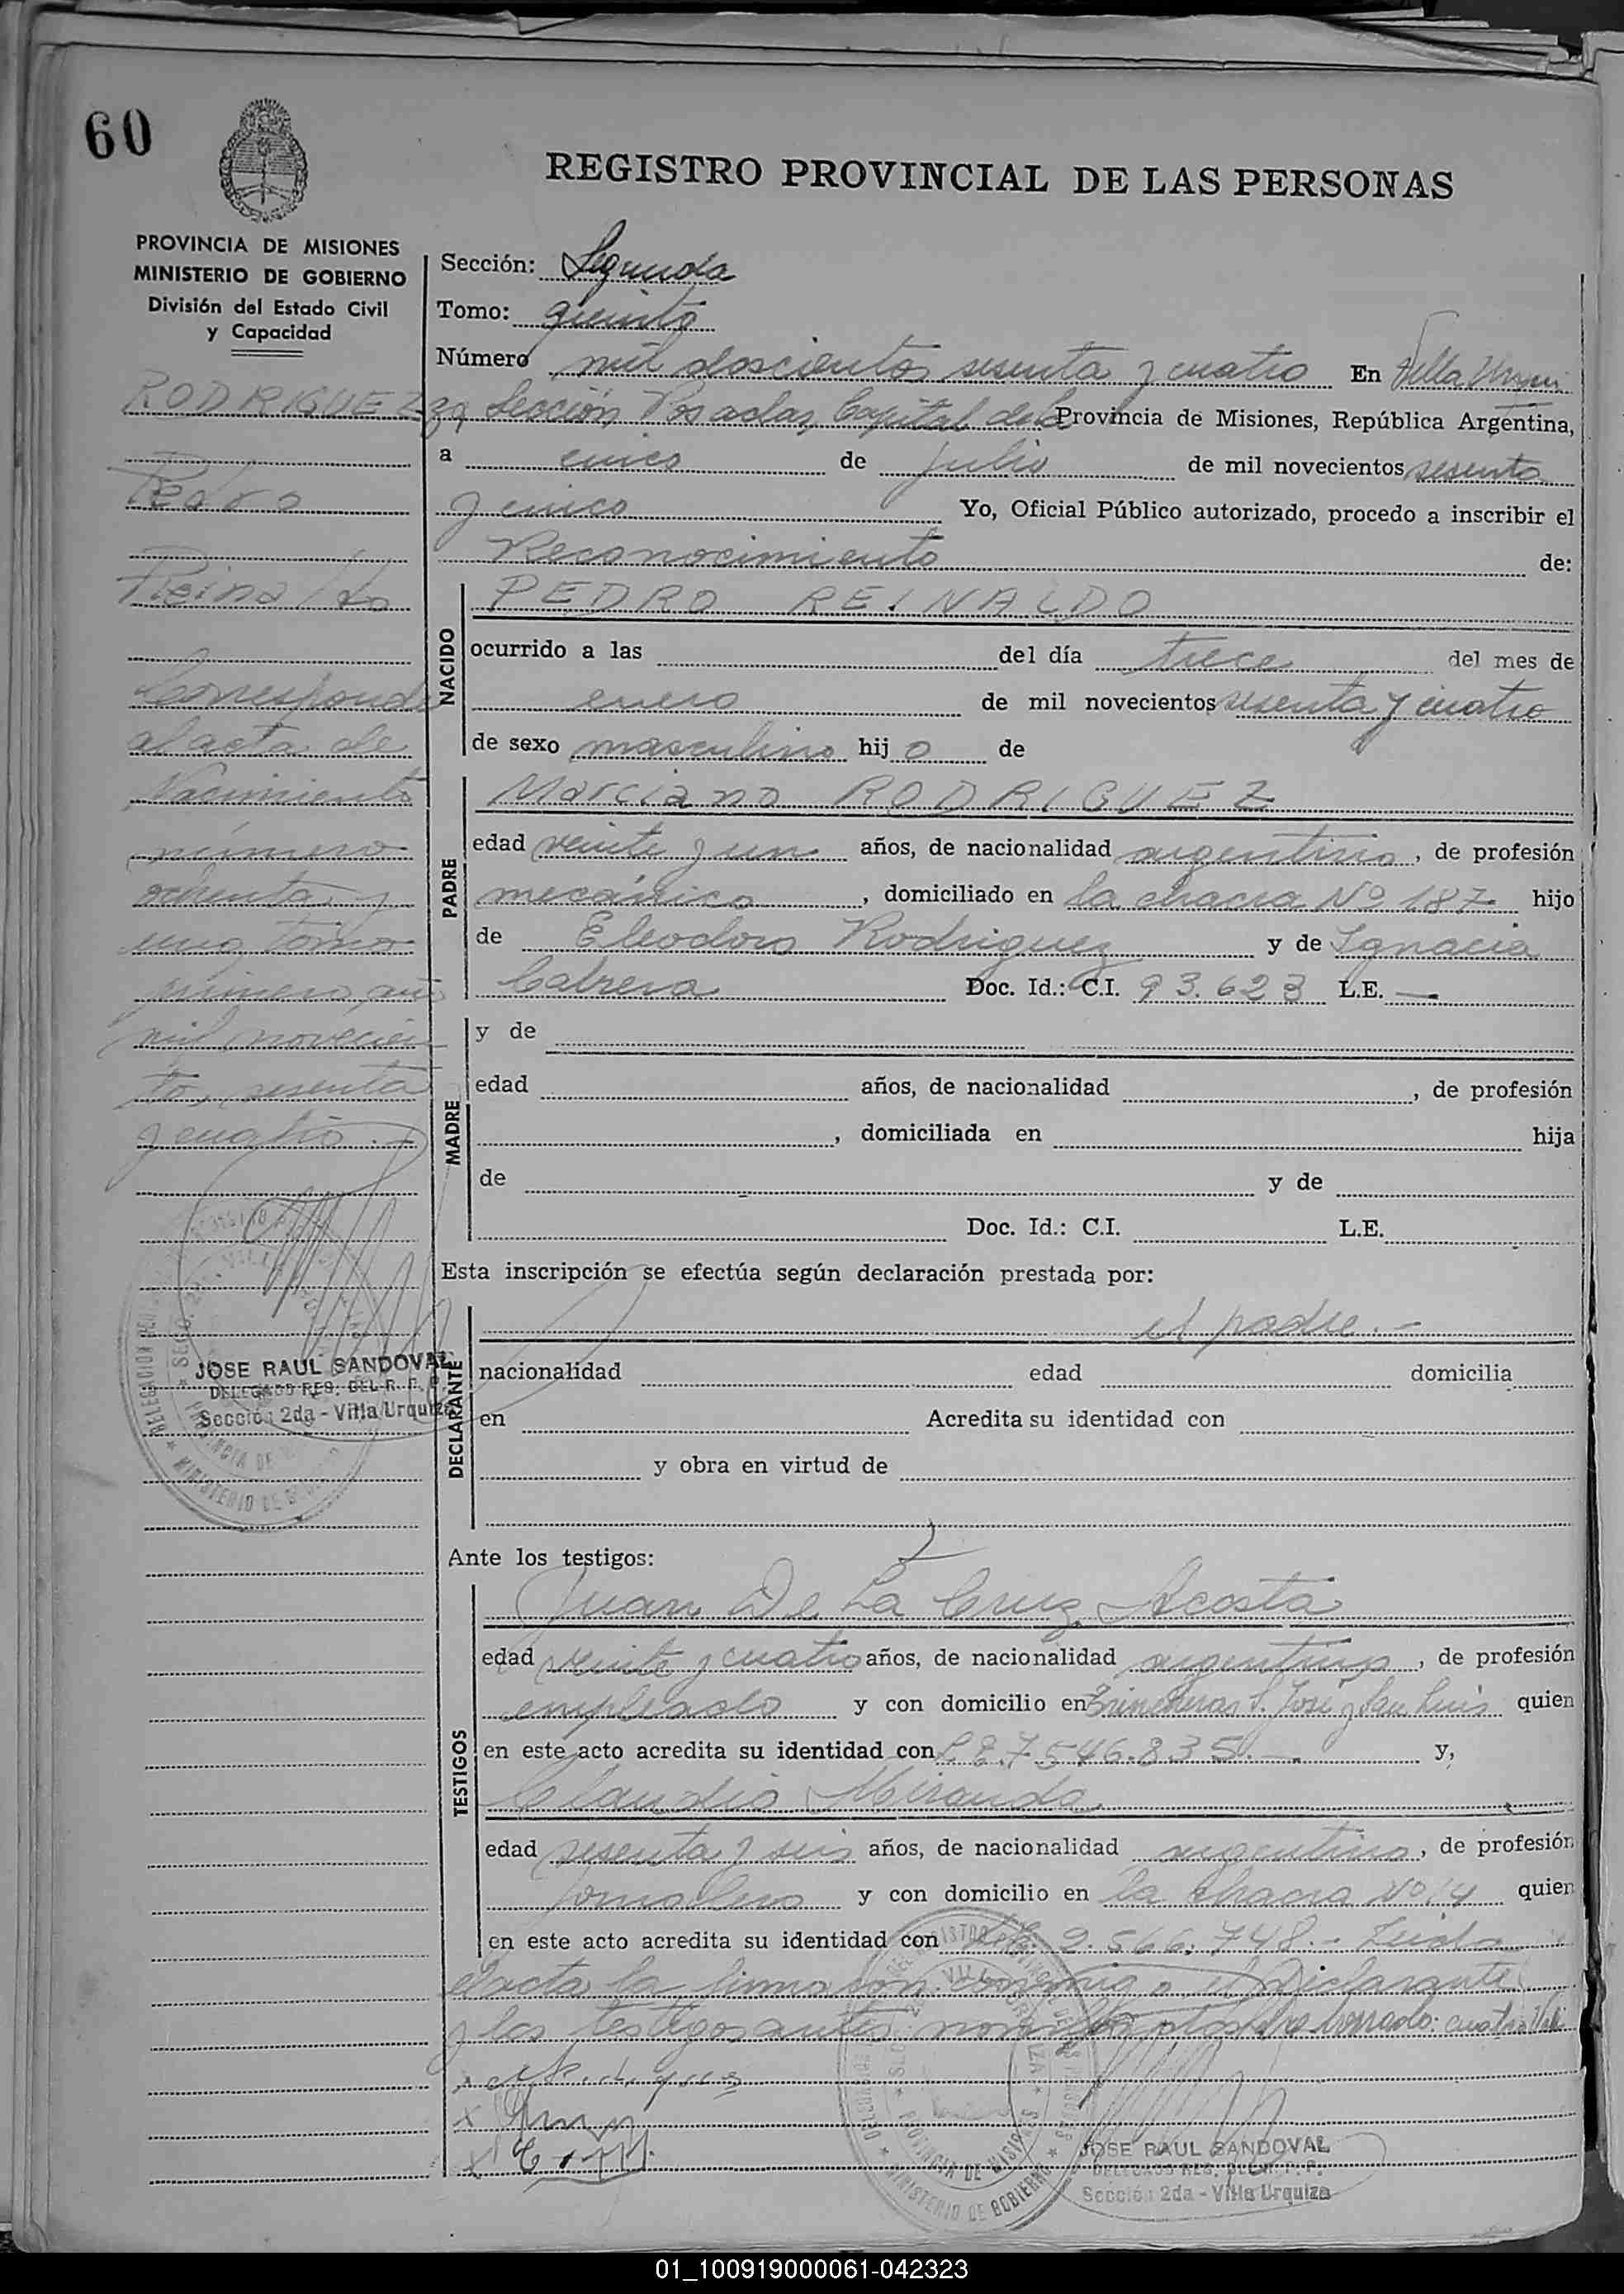 60
REGISTRO PROVINCIAL DE LAS PERSONAS
PROVINCIA DE MISIONES
MINISTERIO DE GOBIERNO
División del Estado Civil
y Capacidad
RODRIGUEZ
Pedro
Reinaldo
Corresponde
al acta de
Nacimiento
número
ochenta y
uno, tomo
primero, año
mil novecien
tos sesenta
y cuatro.-
JOSE RAUL SANDOVAL
DELEGADO RES. DEL R. P. P.
Sección 2da - Villa Urquiza
Sección: Segunda
Tomo: quinto
Número mil doscientos sesenta y cuatro En Villa Urqui
za Sección Posadas, Capital de la Provincia de Misiones, República Argentina,
a cinco de julio de mil novecientos sesenta
y cinco Yo, Oficial Público autorizado, procedo a inscribir el
Reconocimiento de:
NACIDO
PEDRO REINALDO
ocurrido a las del día trece del mes de
enero de mil novecientos sesenta y cuatro
de sexo masculino hijo de
PADRE
Marciano RODRIGUEZ
edad veinte y un años, de nacionalidad argentino, de profesión
mecánico, domiciliado en la chacra Nº 187 hijo
de Eleodoro Rodriguez y de Ignacia
Cabrera Doc. Id.: C.I. 93.623 L.E. —
MADRE
y de
edad años, de nacionalidad , de profesión
, domiciliada en hija
de y de
Doc. Id.: C.I. L.E.
Esta inscripción se efectúa según declaración prestada por:
DECLARANTE
el padre.-
nacionalidad edad domicilia
en Acredita su identidad con
y obra en virtud de
Ante los testigos:
TESTIGOS
Juan De La Cruz Acosta
edad veinte y cuatro años, de nacionalidad argentino, de profesión
empleado y con domicilio en Trincheras S. José y San Luis quien
en este acto acredita su identidad con L.E. 7.546.835.- y,
Claudio Miranda
edad sesenta y seis años, de nacionalidad argentino, de profesión
jornalero y con domicilio en la chacra Nº 14 quien
en este acto acredita su identidad con 2.566.748.- Leida
el acta la firman conmigo el Declarante
y los testigos antes nombrados borrado: cuatro Vale
JOSE RAUL SANDOVAL
DELEGADO RES. DEL R. P. P.
Sección 2da - Villa Urquiza
01_100919000061-042323